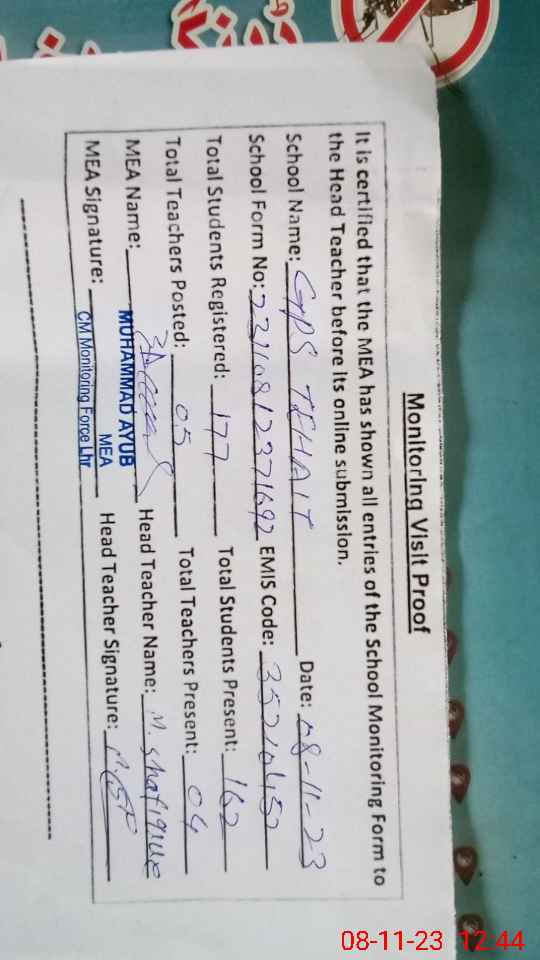 Monitoring Visit Proof
It is certified that the MEA has shown all entries of the School Monitoring Form to
the Head Teacher before its online submission.
School Name: GPS TEHAIT Date: 08-11-23
School Form No: 23110812371692 EMIS Code: 35210452
Total Students Registered: 177 Total Students Present: 162
Total Teachers Posted: 05 Total Teachers Present: 04
MEA Name: Head Teacher Name: M. Shafique
MUHAMMAD AYUB
MEA
MEA Signature: Head Teacher Signature:
CM Monitoring Force Lhr
08-11-23 12:44